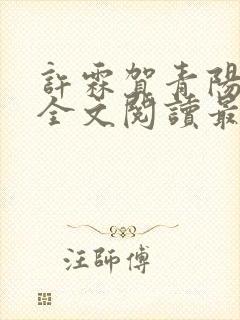 許霖賀青陽
全文閱讀最
汪師傅